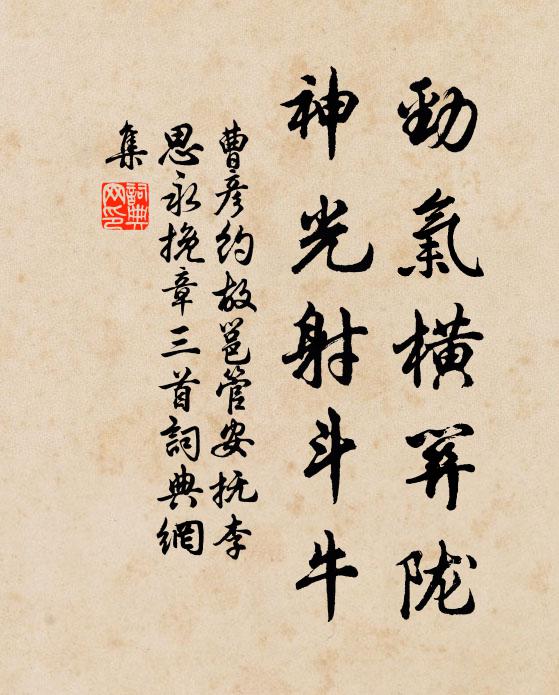 勁氣橫關陇
神光射斗牛
曹彦約故邕管安抚李
思永挽章三首詞典網
集
詞典
网印